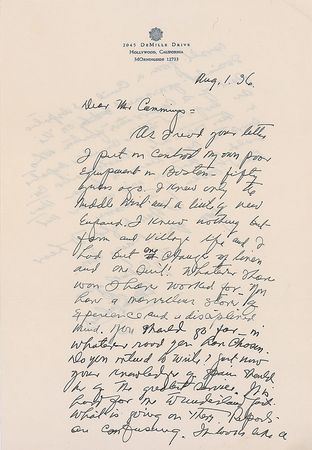 2045 DeMille Drive
Hollywood, California
MOrningside 12733
Aug. 1. 36.
Dear Mr Cummings =
As I read your letter
I put in contrast my own poor
equipment in Boston - fifty
years ago. I knew only the
Middle West and a little of New
England. I knew nothing but
farm and village life and I
had but one change of linen
and one suit! Whatever I have
won I have worked for. You
have a marvellous store of
experience and a disciplined
mind. You should go far - in
whatever road you have chosen.
Do you intend to write? Just now
your knowledge of Spain should
be of the greatest service. It is
hard for me to understand just
what is going on there. Reports
are confusing. It looks like a